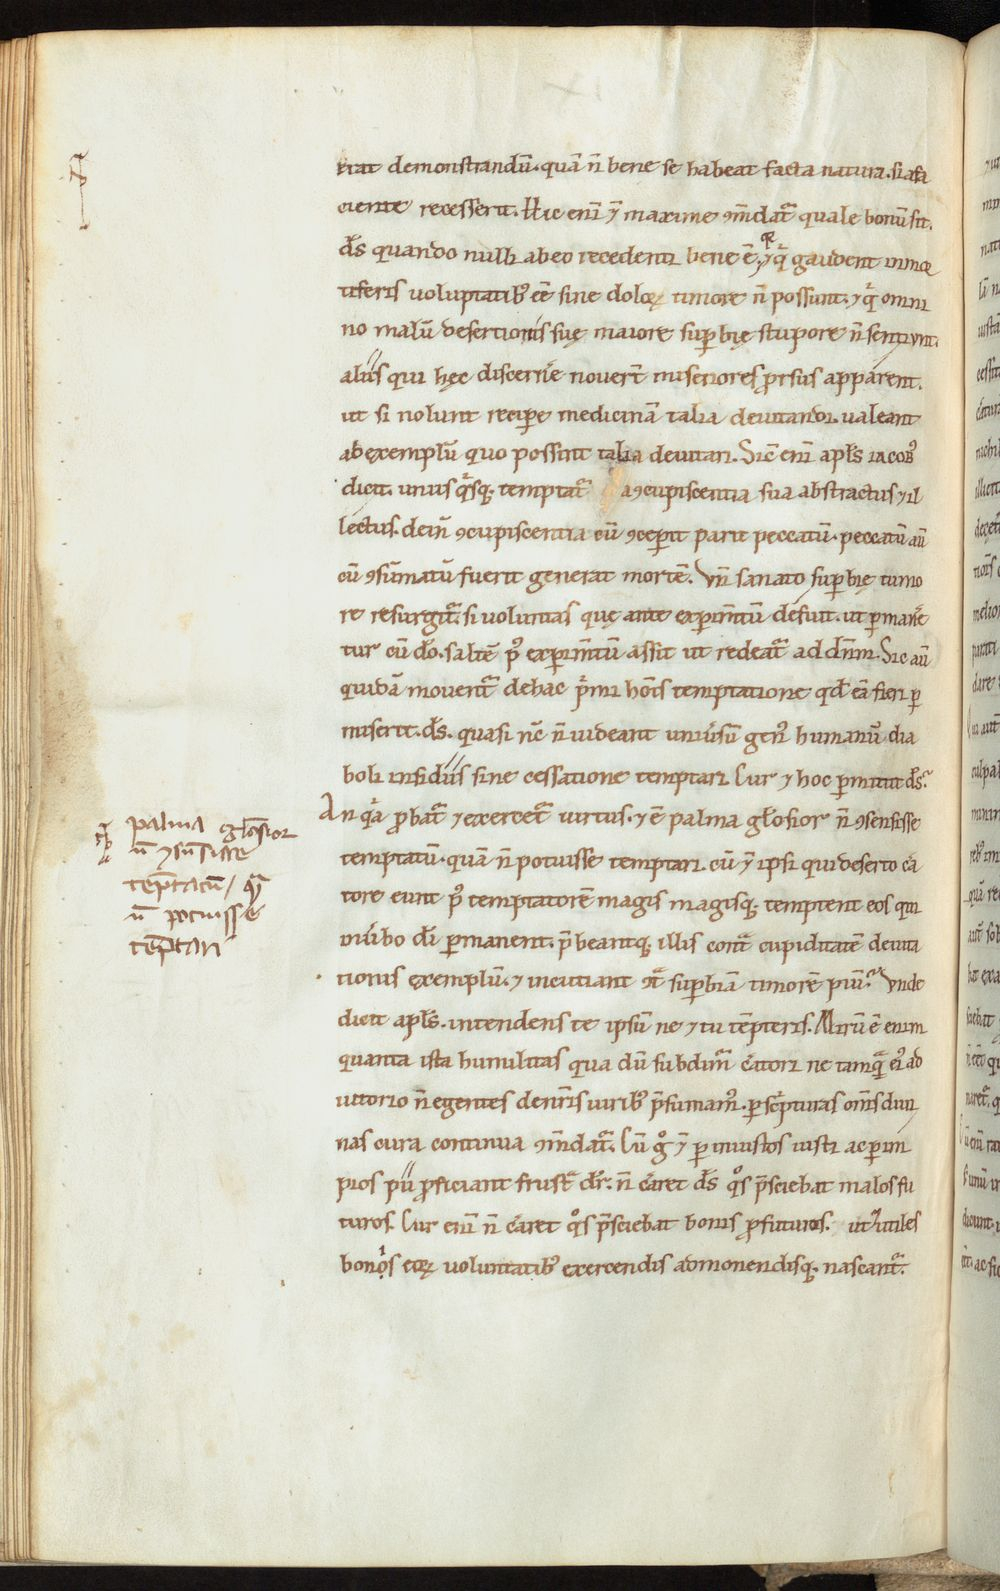 erat demonstrandū. quā n̄ bene se habeat facta natura. si a fa
ciente recesserit. Hic eni᷑ ⁊̄ maxime ꝯm̄dat᷑ quale bonū sit.
ds̄ quando null᷒ ab eo recedenti bene ē. ⁊ q̄ gaudent in mor
tiferis voluptatib᷒ eē sine doloꝝ timore n̄ possunt. ⁊ q̄ omni
no malū desertionis suę maiore suꝑbię stupore n̄ sentiunt.
aliis qui hęc discern̄e nover̄t miseriores ꝓrsus apparent.
ut si nolunt reciꝑe medicinā talia devitandi. valeant
ad exemplū quo possint talia devitari. Sic̄ eni᷑ apl̄s iacob᷒
dicit. unus q̄sq; temptat᷑ a ꝯcupiscentia sua abstractus ⁊ il
lectus. dein̄ ꝯcupiscentia cū ꝯceꝑit parit peccatū. peccatū aū
cū ꝯsūmatū fuerit generat mortē. Vn̄ sanato suꝑbię tumo
re resurgit᷑. si voluntas quę ante exꝑim̄tū defuit. ut ꝑman̄e
tur cū dō. saltē p᷒ exꝑim̄tū assit ut redeat᷑ ad dn̄m. Sic aū
quidā movent᷑ de hac p̄mi hōis temptatione qd̄ eā fieri ꝑ
miserit. ds̄. quasi nc̄ n̄ videant univ̄sū gen᷒ humanū dia
boli insidiis sine cessatione temptari. Cur ⁊ hoc ꝑmittit ds̄?
An q̄a ꝓbat᷑ ⁊ exercet᷑ virtus. ⁊ ē palma glōsior n̄ ꝯsensisse
temptatū. quā n̄ potuisse temptari. cū ⁊̄ ipsi qui deserto c̄a
tore eunt p᷒ temptatorē magis magisq; temptent eos qui
in v̄bo di᷑ ꝑmanent. p̄beantq; illis cont᷑ cupiditatē devita
tionis exemplū. ⁊ incutiant ꝯt᷑ suꝑbiā timorē piū? Vnde
dicit apl̄s. intendens te ipsū ne ⁊ tu tēpteris. Mirū ē enim
quanta ista humilitas qua dū subdim᷑ c̄atori ne tamq᷑ ei᷒ ad
iutorio n̄ egentes de nr̄is virib᷒ p̄sumam᷒. ꝑ sc̄pturas om̄s divi
nas cura continua ꝯm̄dat᷑. Cū g̊ ⁊̄ ꝑ iniustos iusti ac ꝑ im
pios pii ꝓficiant frust᷑ dr̄. n̄ c̄aret ds̄ q̊s p̄sciebat malos fu
turos. Cur eni᷑ n̄ c̄aret q̊s p̄sciebat bonis ꝓfuturos. ut ⁊ utiles
bonis eoꝝ voluntatib᷒ exercendis admonendisq; nascant᷑.
palma glōsior
n̄ ꝯsēsisse
tēptatū / quā
n̄ potuisse
tēptari